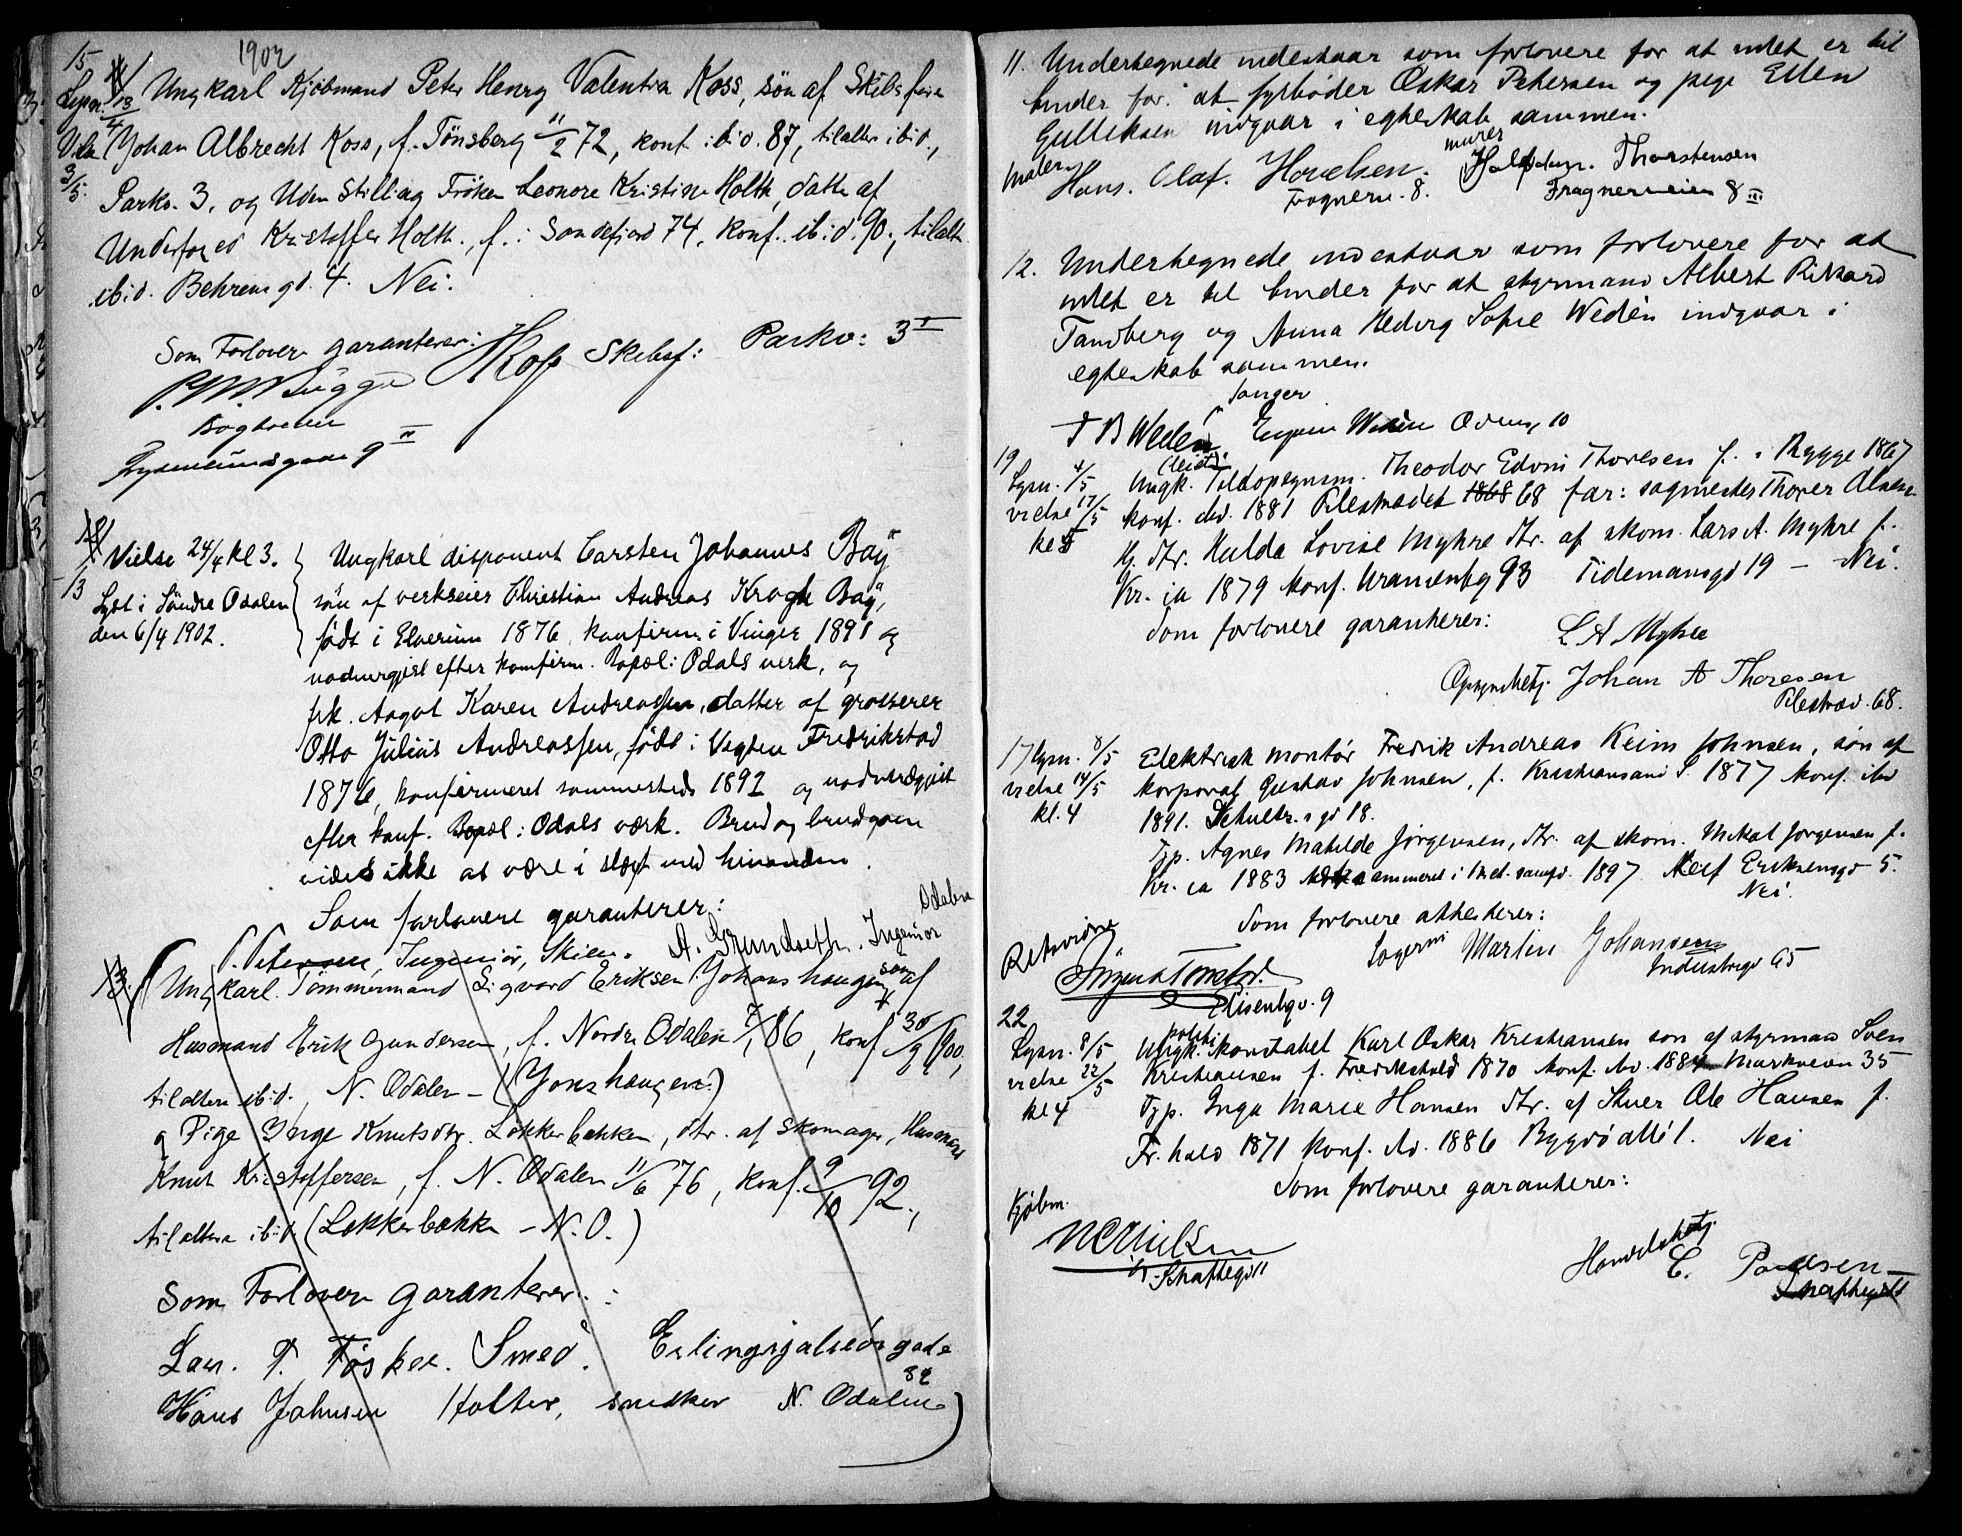 1902
15
Lysn. 13/4 Ungkarl Kjöbmand Peter Henry Valentin Koss, sön af Skibsfører
Johan Albrecht Koss, f. Tönsberg 11/2 72, konf. ibid. 87, tilalters ibid.,
3/5 Parkv. 3, og Uden Stilling Fröken Leonore Kristine Holth, datter af
Underfoged Kristoffer Holth, f. i Sandefjord 74, konf. ibid. 90, tilalt.
ibid. Behrens gd. 4. Nei.
Som Forlovere garanterer:
Koss Skibsf: Parkv: 3 I
Bugge
9 II
Vielse 24/4 kl 3. Ungkarl disponent Carsten Johannes Baÿ
Lyst i Söndre Odalen sön af verkseier Christian Andreas Krogh Baÿ,
den 6/4 1902. født i Elverum 1876, konfirm. i Vinger 1891 og
nadvergjest efter konfirm. Bopæl: Odals verk, og
frk. Aagot Karen Andreassen, datter af grosserer
Otto Julius Andreassen, født i Fredrikstad
1876, konfirmeret sammesteds 1892 og nadverdgjest
efter konf. Bopæl: Odals værk. Brud og brudgom
vides ikke at være i slægt med hinanden.
Som forlovere garanterer:
P. Petersen, Ingeniör, Skien. A. Grundseth. Ingeniör Odalen
13. Ungkarl. Tömmermand Sigvard Eriksen Johanshaugen, sön af
Husmand Erik Gundersen, f. Nordre Odalen 86, konf. 30/9 1900,
tilalters ibid., N. Odalen - (Jonshaugen.)
og Pige Inge Knutsdtr. Løkkerbakken, dtr. af Skomager, Husmand
Knut Kristoffersen, f. N. Odalen 11/6 76, konf. 9/10 92,
tilalters ibid. (Løkkerbakken - N. O.)
Som Forlovere garanterer:
Lau. T. Fosker. Smed. Erlingsjalsøns gade
32
Hans Johnsen Holter, snedker N. Odalen
11. Undertegnede indestaar som forlovere for at intet er til
hinder for at fyrbøder Oskar Petersen og pige Ellen
Gulliksen indgaar i egteskab sammen.
Maler murer
Hans. Olaf. Hovelsen. Halfdan. Thorstensen
Frognerv. 8. Fragnerveien 8 III
12. Undertegnede indestaar som forlovere for at
intet er til hinder for at styrmand Albert Rikard
Tandberg og Anna Hedvig Sofie Wedén indgaar i
egteskab sammen.
Sanger
J B Wedén Eugen Wedén Odins. 10
19
Lysn. 4/5 Ungk. Toldopsynsm. Theodor Edvin Thoresen f. i Rygge 1867
vielse 17/5 konf. ibid. 1881 Pilestrædet 1868 68 far: sagmester Thorer Olsen
kl 5 Kj. dtr. Hulda Lovise Myhre dtr. af skom. Lars A. Myhre f.
Kr. ia 1879 konf. Uranienbg 93 Tidemansgd 19 - Nei.
Som forlovere garanterer: L A Myhre
Opsynsbetj. Johan A Thoresen
Pilestræd. 68.
17 Lysn. 8/5 Elektrisk montör Fredrik Andreas Keim Johnsen, sön af
vielse 14/5 korporal Gustav Johnsen, f. Kristiansand S. 1877 konf. ibid
kl. 4 1891. Schultz's gd 18.
Tjp. Agnes Matilde Jörgensen, dtr. af skom. Mikal Jørgensen f.
Kr. ia 1883 i Met. samfd. 1897. Leif Eriksensgd 5.
Nei.
Som forlovere attesterer:
Retsvidne Lagerm Martin Johansen
Industrigd 65
Elisenbgv. 9
22
Lysn. 8/5 Ungk. politikonstabel Karl Oskar Kristiansen sön af styrmand Sven
vielse 22/5 Kristiansen f. Fredrikshald 1870 konf. ibd. 1884 Markveien 35
kl 4 Tjp. Inga Marie Hansen dtr. af Stuer Ole Hansen f.
Fr.hald 1871 konf. ibd. 1886 Bygdö allé 1. Nei
Som forlovere garanterer:
Kjöbm.
N C Nielsen Handelsbetj.
Schaftegd 11 C. Paulsen